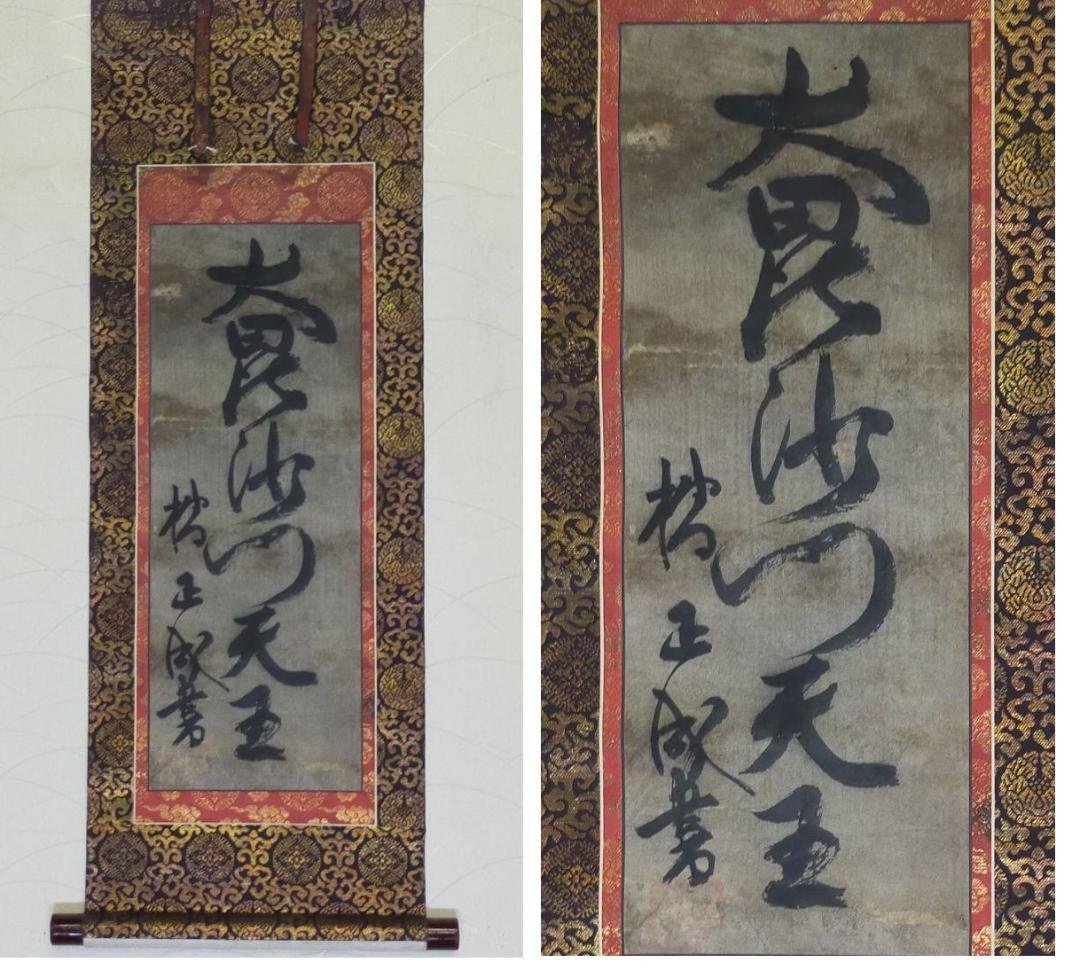 大毘沙門天王
楠正成書
大毘沙門天王
楠正成書